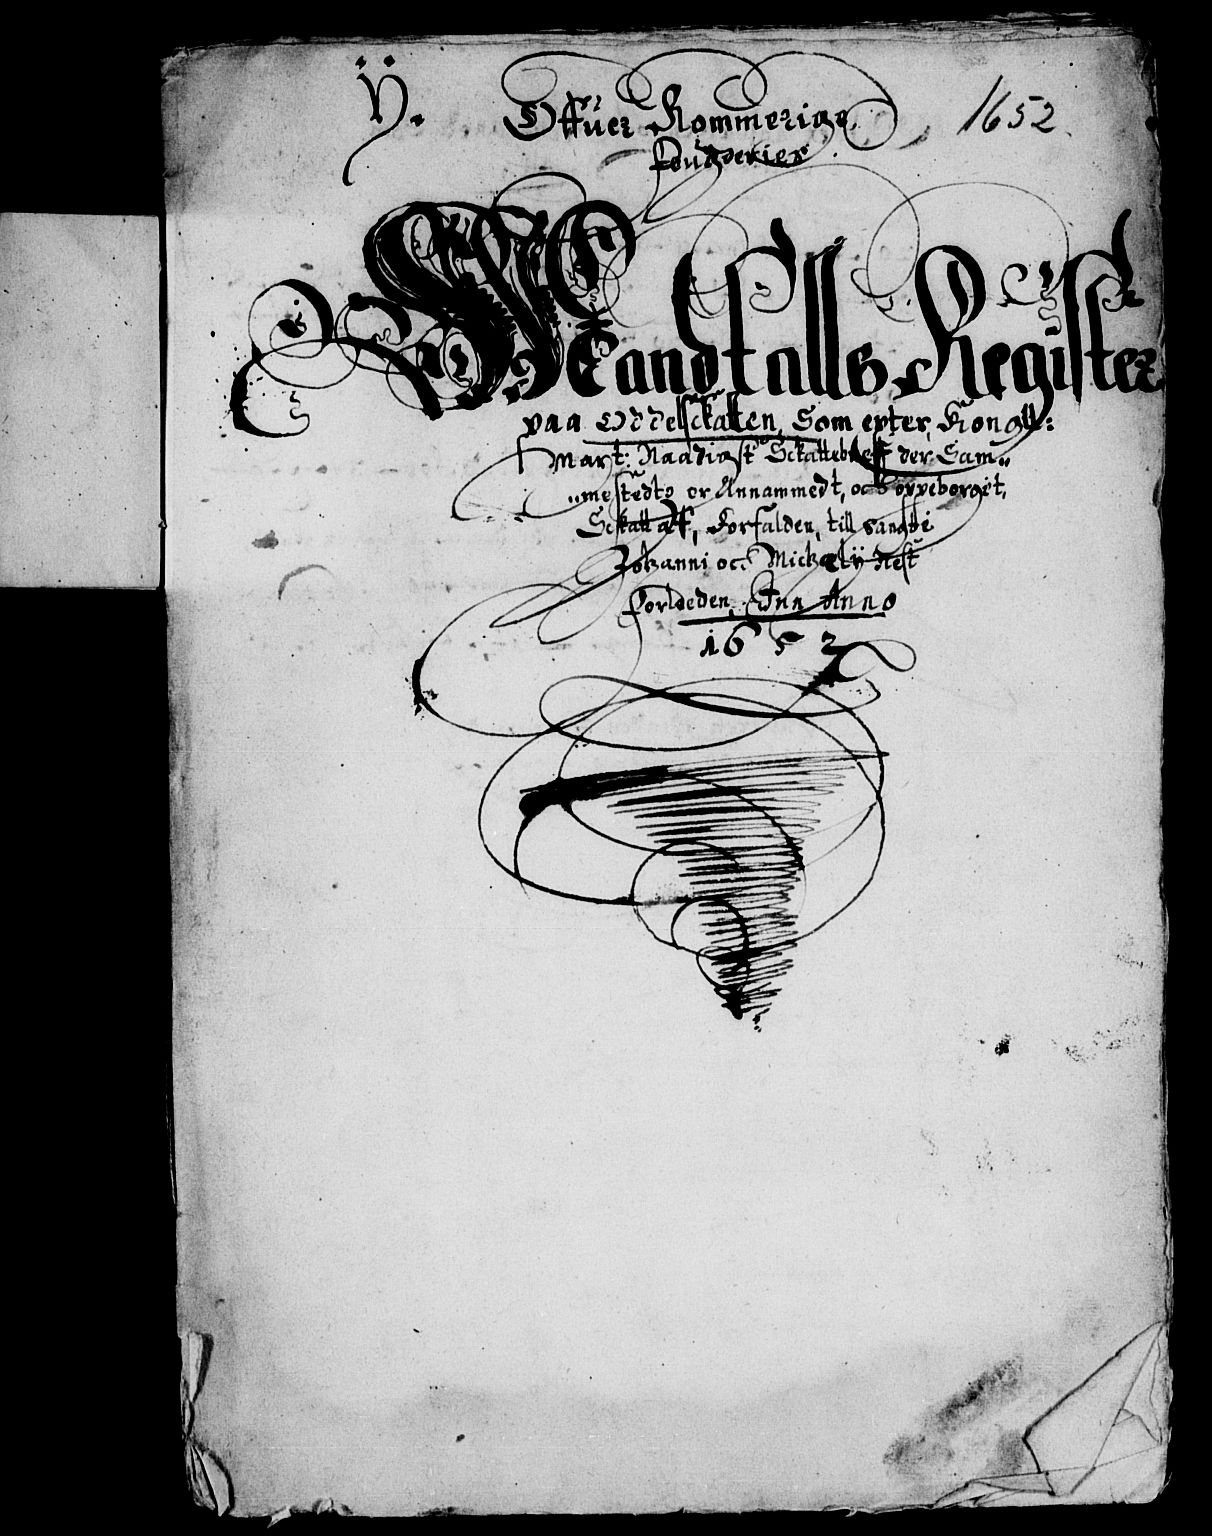 Ÿ.
1652
Offuer Rommerigs
fougderies
Mandtalls Register
paa Oddelsckatten, Som epter, Kongll:
Maÿt: Naadigst Sckattebreff der Sam„
„mestedts er Annammedt, och oppeborget,
Sckatt aff, Forfalden, till sangte
Johanni och Michælÿ Nest
forleeden, Inn Anno
1652